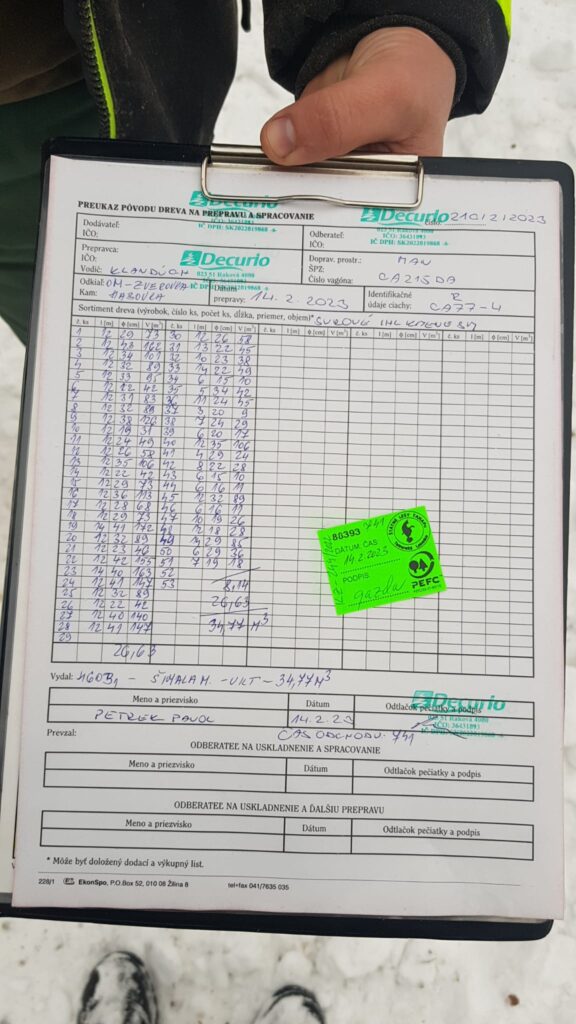 PREUKAZ PÔVODU DREVA NA PREPRAVU A SPRACOVANIE
Decurio
Decurio
číslo: 210121 2023
Dodávateľ:
IČO:
023 51 Raková 4080
IČO: 36431093
IČ DPH: SK2022019868
Odberateľ:
IČO:
023 51 Raková 4080
IČO: 36431093
IČ DPH: SK2022019868
Prepravca:
IČO:
Vodič:
Decurio
023 51 Raková 4080
IČO: 36431093
IČ DPH: SK2022019868
Doprav. prostr.: MAN
ŠPZ:
Číslo vagóna: CA215DA
Odkiaľ: OM-ZVEROVKA
Kam:
Dátum
prepravy: 14.2.2023
Identifikačné
údaje ciachy: R
CA77-4
Sortiment dreva (výrobok, číslo ks, počet ks, dĺžka, priemer, objem)*
č. ks l [m] ϕ [cm] V [m³] č. ks l [m] ϕ [cm] V [m³] č. ks l [m] ϕ [cm] V [m³] č. ks l [m] ϕ [cm] V [m³] č. ks l [m] ϕ [cm] V [m³]
1 12 29 79 30 12 26 58
2 11 43 162 31 13 22 45
3 12 34 101 32 10 23 38
4 12 32 89 33 14 22 49
5 12 33 95 34 6 15 10
6 12 22 42 35 5 34 42
7 12 31 83 36 11 24 45
8 12 32 89 37 3 20 9
9 12 38 126 38 7 24 29
10 12 19 31 39 6 20 17
11 12 24 49 40 12 35 106
12 12 26 58 41 4 29 24
13 12 35 106 42 8 22 28
14 12 22 42 43 6 15 10
15 12 29 73 44 6 16 11
16 12 36 113 45 12 32 89
17 12 28 68 46 6 16 11
18 12 29 73 47 10 19 26
19 14 41 172 48 12 18 28
20 12 32 89 49 14 29 85
21 12 23 46 50 6 29 36
22 12 42 155 51 7 19 18
23 14 40 163 52
24 12 41 147 53 8,14
25 12 32 89 26,63
26 12 22 42
27 12 40 140 34,77 M³
28 12 41 147
29
26,63
88393 741
DÁTUM ČAS
14.2.2023
PODPIS
gazda
PEFC
Vydal: - VKT - 34,77 M³
Decurio
Meno a priezvisko Dátum Odtlačok pečiatky a podpis
023 51 Raková 4080
IČO: 36431093
IČ DPH: SK2022019868
PETREK PAVOL 14.2.23
Prevzal: ČAS ODCHODU: 741
ODBERATEĽ NA USKLADNENIE A SPRACOVANIE
Meno a priezvisko Dátum Odtlačok pečiatky a podpis
ODBERATEĽ NA USKLADNENIE A ĎALŠIU PREPRAVU
Meno a priezvisko Dátum Odtlačok pečiatky a podpis
* Môže byť doložený dodací a výkupný list.
228/1 EkonSpo, P.O.Box 52, 010 08 Žilina 8 tel+fax 041/7635 035